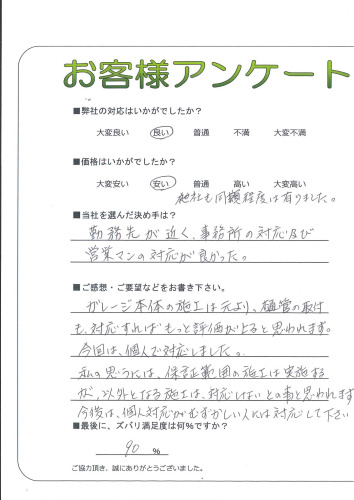 お客様アンケート
■弊社の対応はいかがでしたか?
大変良い 良い 普通 不満 大変不満
■価格はいかがでしたか?
大変安い 安い 普通 高い 大変高い
他社も同額程度は有りました。
■当社を選んだ決め手は?
勤務先が近く、事務所の対応及び
営業マンの対応が良かった。
■ご感想・ご要望などをお書き下さい。
ガレージ本体の施工は元より、樋管の取付
も、対応すればもっと評価が上ると思われます。
今回は、個人で対応しました。
私の思うには、保証範囲の施工は実施する
が、以外となる施工は、対応しないとの事と思われます
今後は、個人対応がむずかしい人には対応して下さい
■最後に、ズバリ満足度は何%ですか?
90 %
ご協力頂き、誠にありがとうございました。